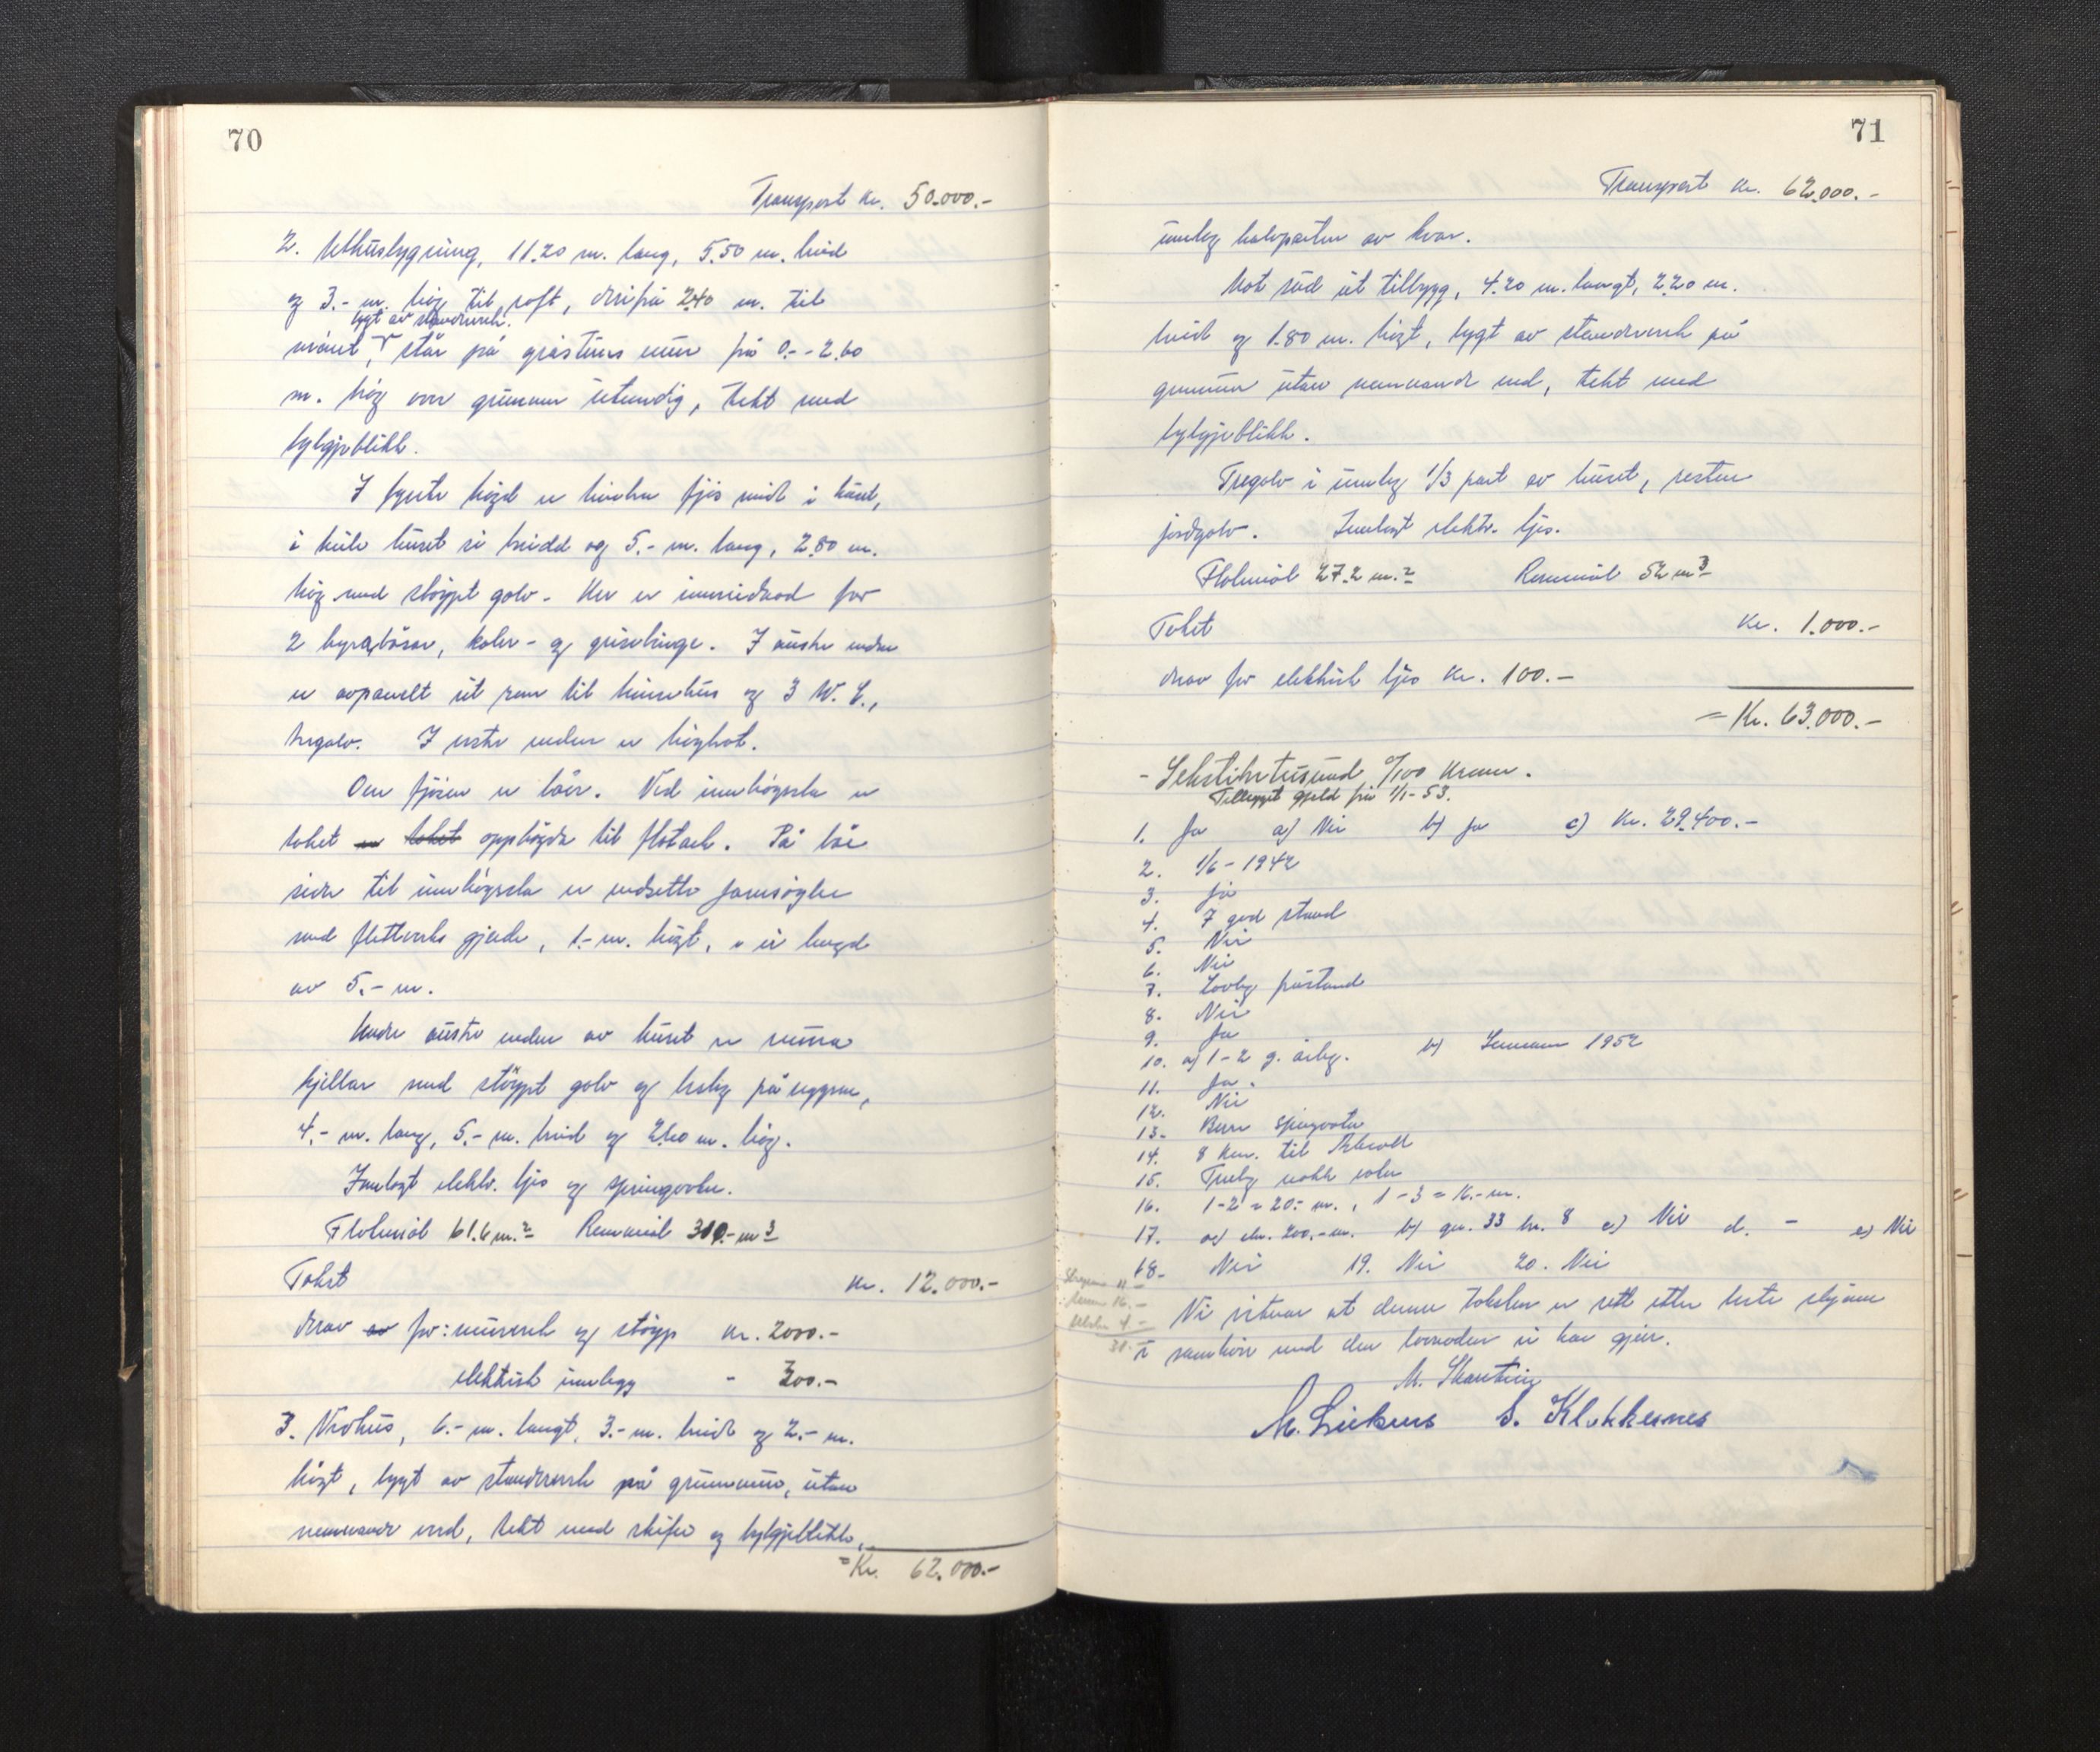 70
Transport kr. 50.000.-
2. Uthusbygning, 11.20 m. lang, 5.50 m. breid
og 3.- m. høg til roft, derifrå 2.40 m. til
bygt av standverk.
mønet, står på gråsteins mur frå 0.- - 2.60
m. høg over grunnen utvendig, tekt med
bylgjeblikk.
I fyrste høgd er fjøs midt i huset,
i heile huset si breidd og 5.- m. lang, 2.80 m.
høg med støypt golv. Her er innreidnad for
2 kyr, kalve- og grisebinge. I austre enden
er avpanelt eit rom til hønsehus og 3 W.C.,
tregolv. I vestre enden er
Over fjøsen er løer. Ved innkøyrsla er
taket er teket opphøgda til flatark. På båe
sider til innkøyrsla er
med flettverks gjerde, 1.- m. høgt, i ei lengd
av 5.- m.
Under austre enden av huset er mura
kjellar med støypt golv og,
4.- m. lang, 5.- m. breid og 2.60 m. høg.
Innlagt elektr. ljos og springvatn.
Flatemål 61.6 m.² Rommål 310.- m³
Takst kr. 12.000.-
Derav av for: murverk og støyp kr. 2000.-
elektrisk innlegg - 300.-
3. Vedhus, 6.- m. langt, 3.- m. breidt og 2.- m.
høgt, bygt av standverk på grunnmur, utan
nemnande verd, tekt med skifer og bylgjeblikk,
= Kr. 62.000.-
71
Transport kr. 62.000.-
umlag halvparten av kvar.
Mot sud eit tilbygg, 4.20 m. langt, 2.20 m.
breidt og 1.80 m. høgt, bygt av standverk på
grunnmur utan nemnande verd, tekt med
bylgjeblikk.
Tregolv i umlag 1/3 part av huset, resten
jordgolv. Innlagt elektr. ljos.
Flatemål 27.2 m.² Rommål 52 m³
Takst Kr. 1.000.-
derav for elektrisk ljos kr. 100.-
= Kr. 63.000.-
- Sekstitretusund 0/100 kroner.
Tillegget gjeld frå 1/1-53.
1. Ja a) Nei b) Ja c) Kr. 29.400.-
2. 1/6 - 1942
3. Ja
4. I god stand
5. Nei
6. Nei
7. Lovleg påstand
8. Nei
9. Ja
10. a) 1-2 g. årleg. b) Sumaren 1952
11. Ja.
12. Nei
13. Berre springvatn
14. 8 km. til
15. Truleg nokk
16. 1-2 = 20.- m., 1-3 = 16.- m.
17. a) 200.- m. b) gnr. 33 br. 8 c) Nei d. - e) Nei
18. Nei 19. Nei 20. Nei
Vi vitnar at denne taksten er sett etter beste skjønn
i samhøve med den lovnaden vi har gjeve.
M.
S. Klokkernes